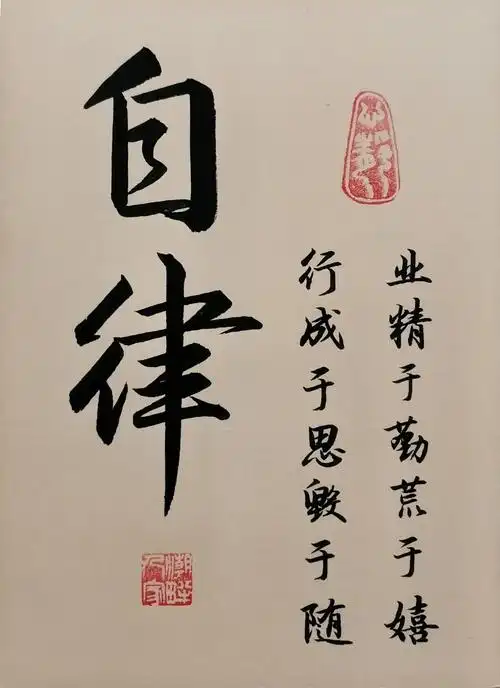 业精于勤荒于嬉
行成于思毁于随
自律